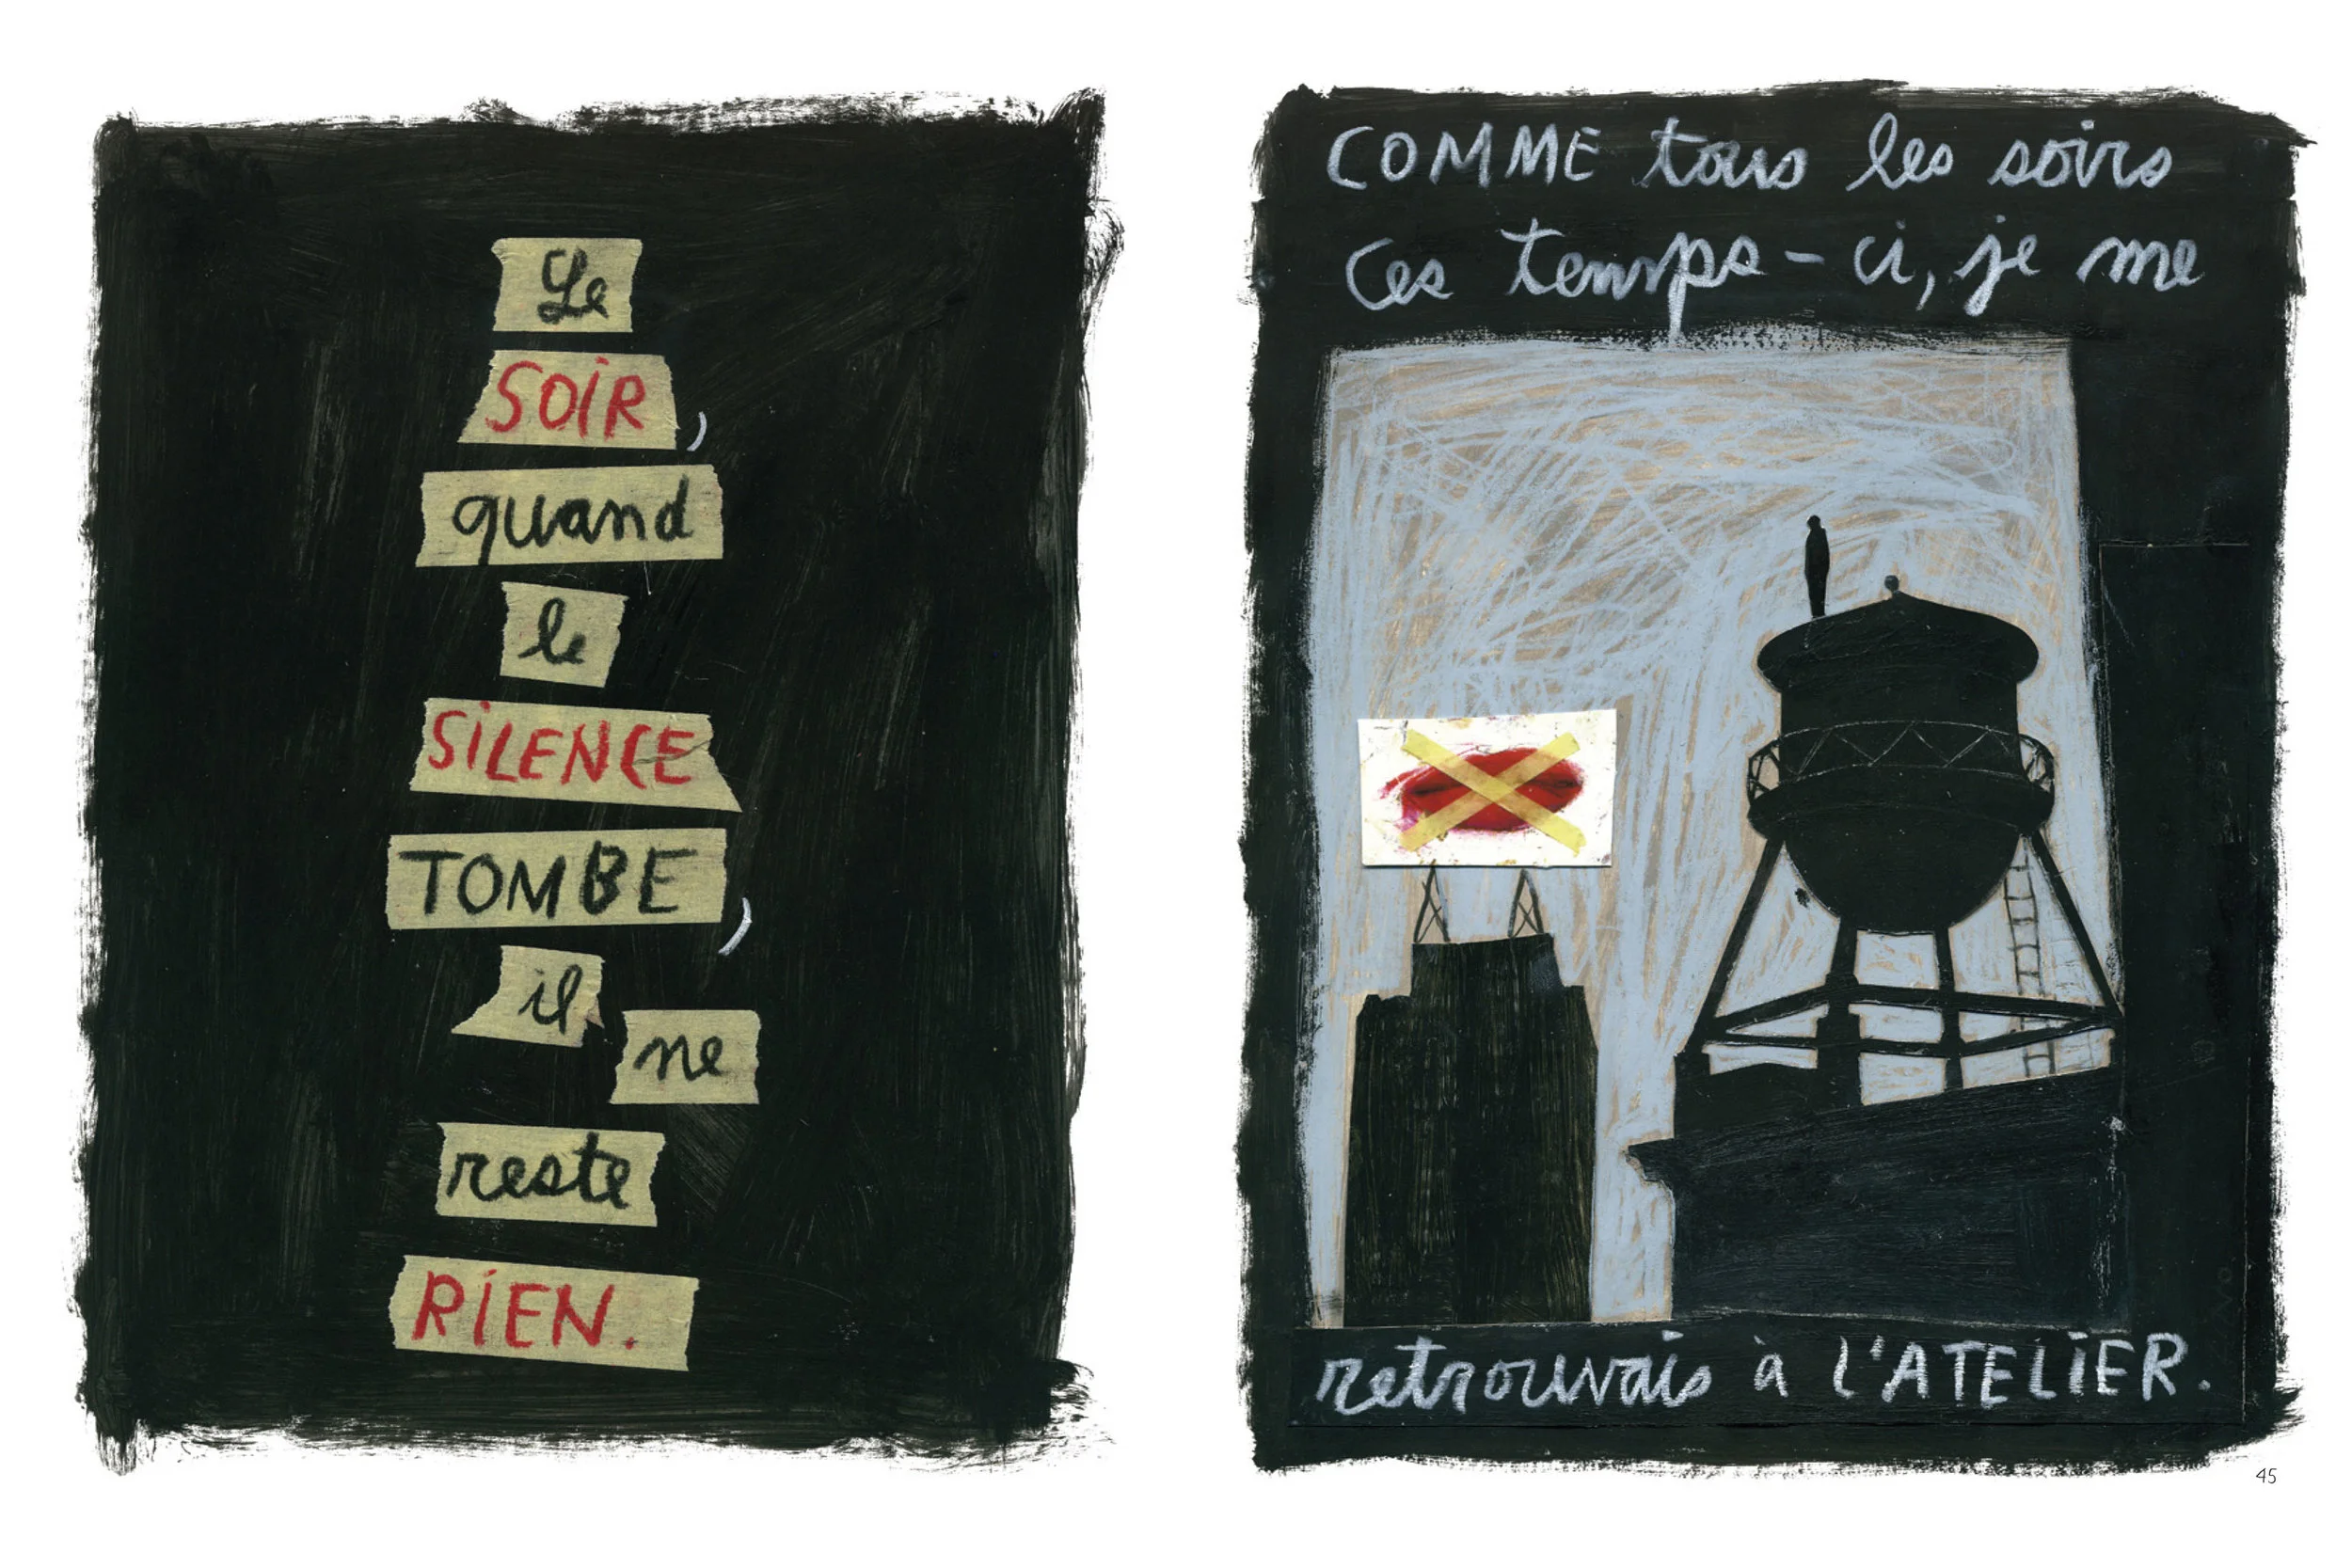 Le
SOIR,
quand
le
SILENCE
TOMBE,
il
ne
reste
RIEN.
COMME tous les soirs
ces temps-ci, je me
retrouvais à L'ATELIER.
45